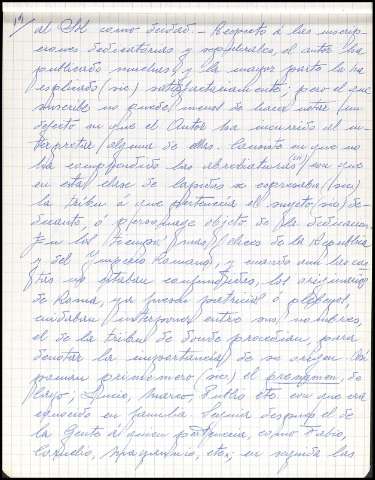 11)
al Sol como deidad.- Respecto á las inscrip-
ciones dedicatorias y sepulcrales, el autor ha
publicado muchas, y la mayor parte la ha
esplicado (sic) satisfactoriamente; pero el que
suscribe no puede menos de hacer notar un
defecto en que el Autor ha incurrido al in-
terpretar alguna de ellas. Consiste en que no
ha comprendido las abreviaturas con que
en esta clase de lápidas se espresaba (sic)
la tribu á que pertenecia el sujeto (sic) de-
dicante, ó personage objeto de la dedicación.
En los tiempos mas felices de la República
y del Imperio Romano, y cuando aun las cas-
tas no estaban confundidas, los originarios
de Roma, ya fuesen patricios ó plebeyos,
cuidaban interponer entre sus nombres,
el de la tribu de donde procedian, para
denotar la importancia de su origen. Asi
ponian primimero (sic) el prenomen, de
Cayo, Lucio, Marco, Publio etc. con que era
conocido en familia. Seguia despues el de
la Gente á quien pertenecia, como Fabio,
Cornelio,
etc.; en seguida las